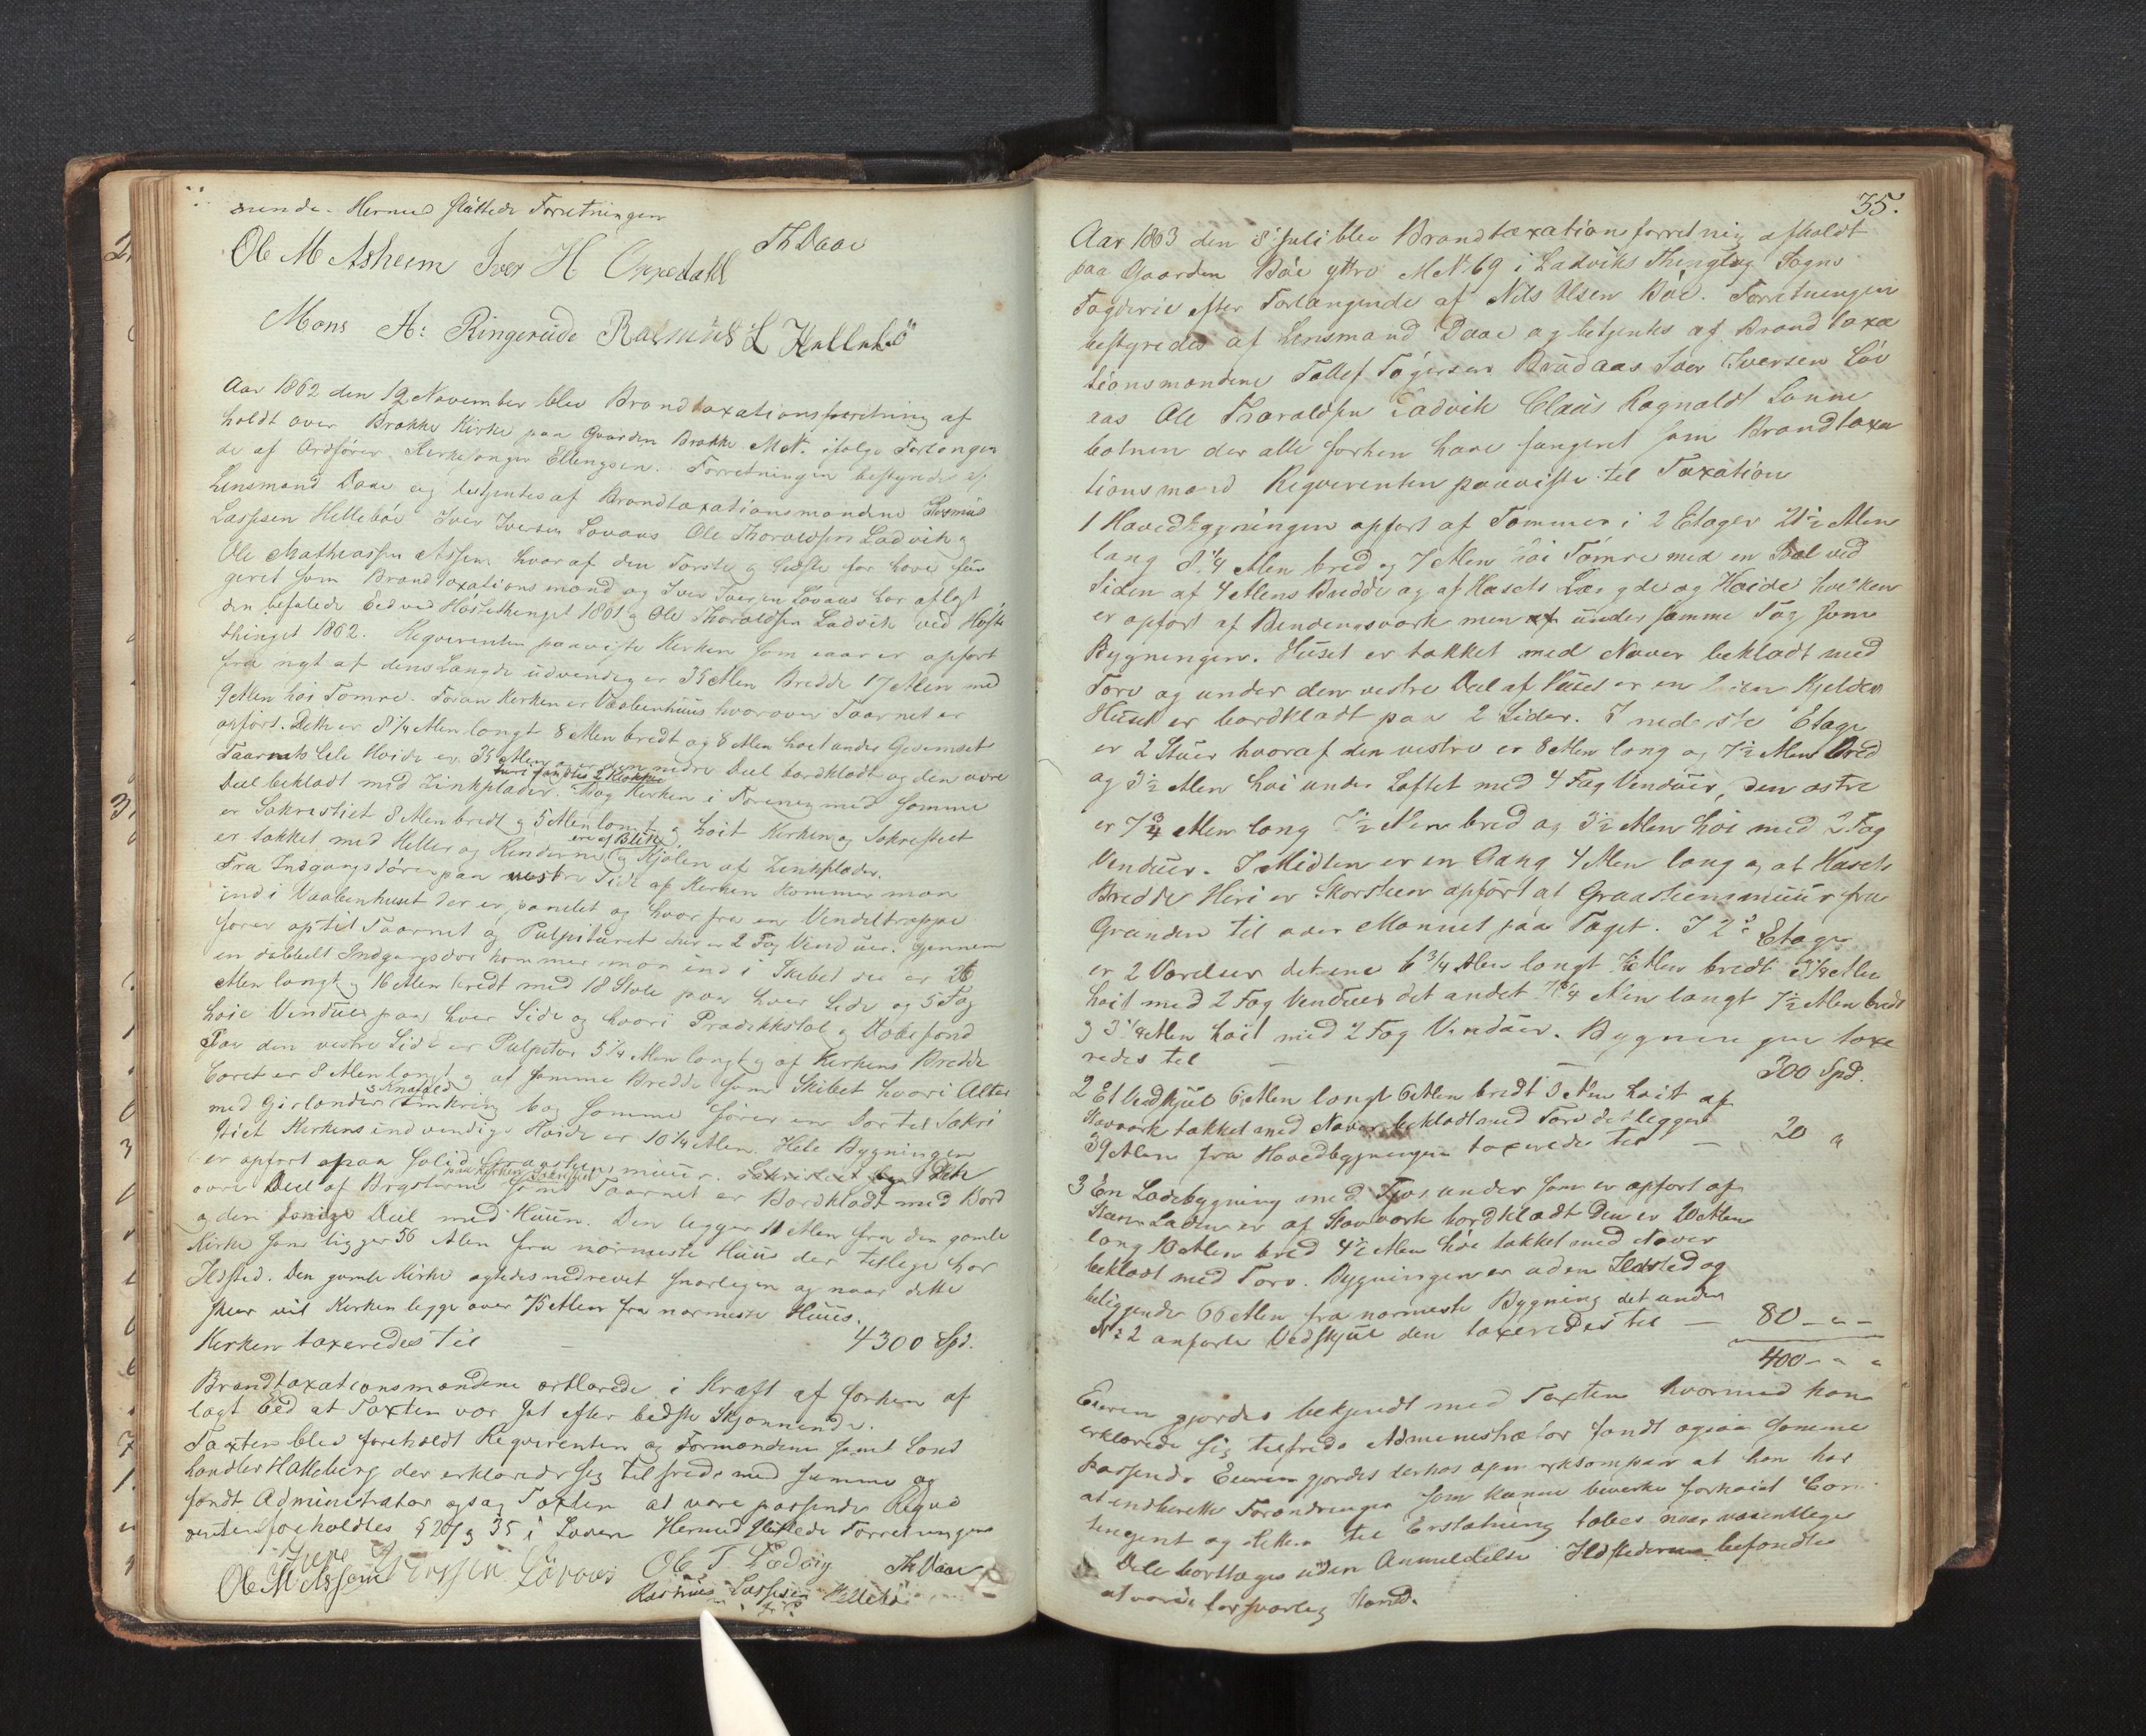 sunde. Hermed sluttede Forretningen
Th Daae
Ole M Asheim Iver H Oppedahl
Mons A: Ringerüde Rasmus L Hellebö
Aar 1862 den 19 November blev Brandtaxationsforretning af
holdt over Brække Kirke paa Gaarden Brække MNr. ifølge Forlangen
de af Ordfører Kirkesanger Ellingsen. Forretningen bestyredes af
Lensmand Daae og betjentes af Brandtaxationsmændene Rasmus
Lassesen Hellebøe Iver Iversen Løvaas Ole Thoraldsen Ladvik og
Ole Mathiassen Assem hvoraf den Første og Sidste før have fun
geret som Brandtaxationsmænd og Iver Iversen Løvaas har aflagt
den befalede Eed ved Høstethinget 1861 og Ole Thoraldsen Ladvik ved Høste
thinget 1862. Reqvirenten paaviste Kirken som iaar er opført
fra nyt af dens Længde udvendig er 35 Alen Bredde 17 Alen med
9 Alen høi Tømre. Foran Kirken er Vaabenhuus hvorover Taarnet er
opført. Dette er 8 1/4 Alen langt 8 Alen bredt og 8 Alen høit under Gesimset
Taarnets hele Høide er 35 Alen og er den nedre Deel bordklædt og den øvre
Deel beklædt med Zinkplader. hvori fandtes 2 Klokker Bag Kirken i Forening med samme
er Sakrestiet 8 Alen bredt og 5 Alen langt og høit Kirken og Sakrestiet
er takket med Heller og Renderne ere af Blik og Kjølen af Zinkplader.
Fra Indgangsdøren paa vestre Side af Kirken kommer man
ind i Vaabenhuset der er panelet og hvorfra en Vendeltrappe
fører op til Taarnet og Pulpituret her er 2 Fag Vinduer. Gjennem
en dobbelt Indgangsdør kommer man ind i Skibet der er 20
Alen langt og 16 Alen bredt med 18 Stole paa hver Side og 5 Fag
høie Vinduer paa hver Side og hvori Prædikestol og Døbefond
Paa den vestre Side er Pulpitur 5 1/4 Alen langt og af Kirkens Bredde
Coret er 8 Alen langt og af samme Bredde som Skibet hvori Alter
med Girlander og Knæfald omkring bag samme fører en Dør til Sakri
stiet Kirkens indvendige Høide er 10 1/4 Alen. Hele Bygningen
er opført paa solid Graasteensmuur. Dette
øvre Deel af paa Kirken Sakrestiet samt Taarnet er Bordklædt med Bord
og den øvrige Deel med Huun. Den ligger 11 Alen fra den gamle
Kirke som ligger 56 Alen fra nærmeste Huus der tillige har
Ildsted. Den gamle Kirke agtedes nedrevet snarligen og naar dette
skeer vil Kirken ligge over 75 Alen fra nærmeste Huus.
Kirken taxeredes til — 4300 Spd.
Brandtaxationsmændene erklærede i Kraft af forhen af
lagt Eed at Taxten var sat efter bedste Skjønnende.
Taxten blev foreholdt Reqvirenten og Formændene samt Land
handler Halleberg der erklærede sig tilfreds med samme og
fandt Administrator ogsaa Taxten at være passende Reqvi
renten foreholdtes § 20 og 35 i Loven Hermed sluttede Forretningen
Iver Iverssen Løvaas Ole T Ladvig Th Daae
Ole M Assem Rasmus Lassesen Hellebö
35.
Aar 1863 den 8 Juli blev Brandtaxationsforretning afholdt
paa Gaarden Bøe yttre MNr 69 i Ladviks Thinglag Sogns
Fogderie efter Forlangende af Nils Olsen Bøe. Forretningen
bestyredes af Lensmand Daae og betjentes af Brandtaxa
tionsmændene Tollef Tøgersen Brudaas Iver Iversen Løv
aas Ole Thoraldsen Ladvik Claus Ragnald Sønne
botnen der alle forhen have fungeret som Brandtaxa
tionsmænd Reqvirenten paaviste til Taxation
1 Hovedbygningen opført af Tømmer i 2 Etager 21 1/2 Alen
lang 8 1/4 Alen bred og 7 Alen høi Tømre med en Sval ved
Siden af 4 Alens Bredde og af Husets Længde og Høide hvilken
er opført af Bindingsværk men under samme Tag som
Bygningen. Huset er takket med Næver beklædt med
Torv og under den vestre Deel af Huset er en Kjelder
Huset er bordklædt paa 2 Sider. I nederste Etage
er 2 Stuer hvoraf den vestre er 8 Alen lang og 7 1/2 Alen bred
og 3 1/2 Alen høi under Loftet med 4 Fag Vinduer, den østre
er 7 3/4 Alen lang 7 1/2 Alen bred og 3 1/2 Alen høi med 2 Fag
Vinduer. I Midten er en Gang 4 Alen lang og af Husets
Bredde Heri er Skorsteen opført af Graasteensmuur fra
Grunden til over Mønnet paa Taget. I 2den Etage
er 2 Værelser det ene 6 3/4 Alen langt Alen bredt 3 1/4 Alen
høit med 2 Fag Vinduer det andet 7 3/4 Alen langt 7 1/2 Alen bredt
og 3 1/4 Alen høit med 2 Fag Vinduer. Bygningen taxe
redes til — 300 Spd.
2 Et Vedskjul 6 Alen langt 6 Alen bredt 3 Alen høit af
Stavværk takket med Næver beklædt med Torv det ligger
39 Alen fra Hovedbygningen taxeredes til — 20 "
3 En Ladebygning med Fjøs under som er opført af
Steen Laden er af Stavværk bordklædt Den er 20 Alen
lang 10 Alen bred 4 1/2 Alen høi takket med Næver
beklædt med Torv. Bygningen er uden Ildsted og
beliggende 66 Alen fra nærmeste Bygning det under
No 2 anførte Vedskjul den taxeredes til — 80 - " -
400 - " "
Eieren gjordes bekjendt med Taxten hvormed han
erklærede sig tilfreds Administrator fandt ogsaa samme
passende Eieren gjordes derhos opmærksom paa at han har
at indberette Forandringer som kunne bevirke forhøiet Con
tingent og Retten til Erstatning tabes naar væsentlige
Dele borttages uden Anmeldelse Ildstederne befandtes
at være i forsvarlig Stand.